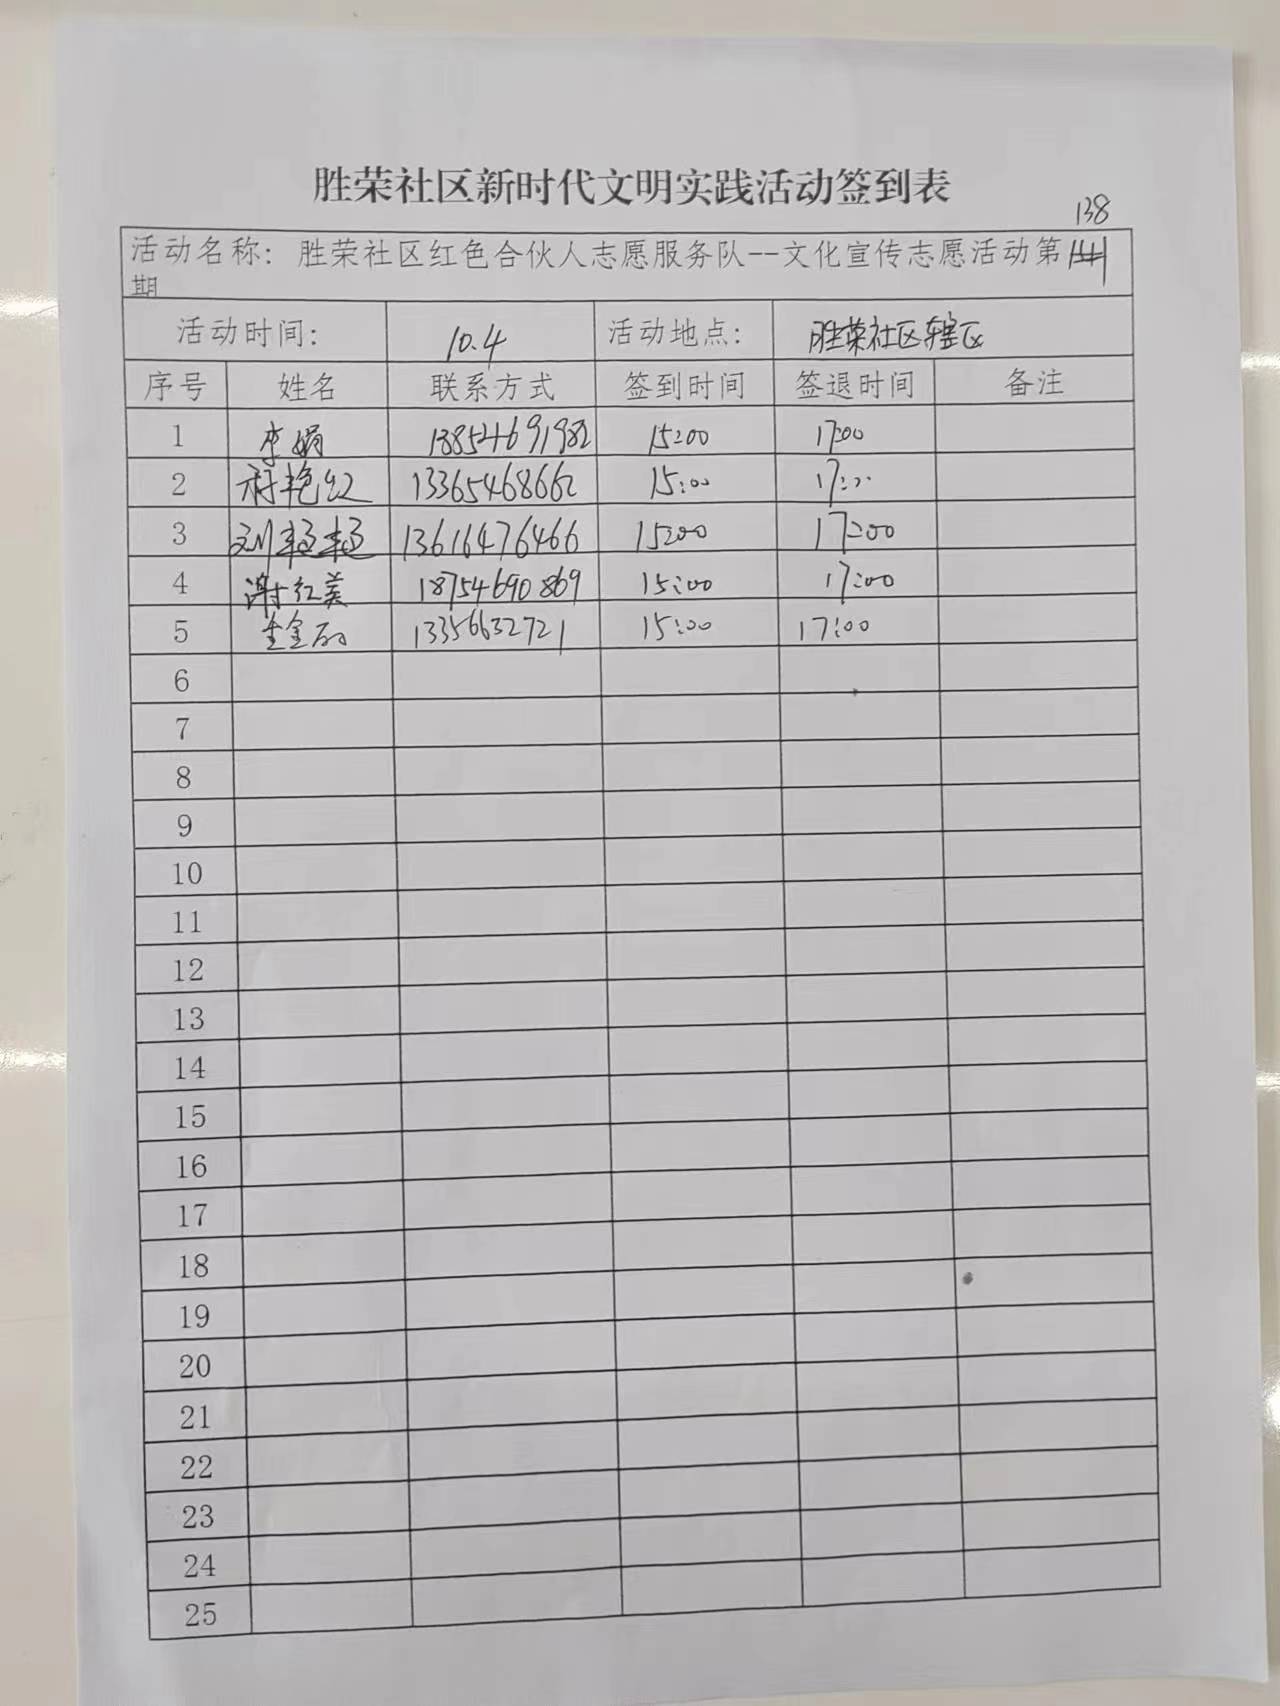 胜荣社区新时代文明实践活动签到表
138
活动名称：胜荣社区红色合伙人志愿服务队--文化宣传志愿活动第
期
活动时间： 10.4 活动地点： 胜荣社区辖区
序号 姓名 联系方式 签到时间 签退时间 备注
1 李娟 13854691982 15:00 17:00
2 艳红 13365468662 15:00 17:00
3 刘艳艳 13616476466 15:00 17:00
4 谢红美 18754690869 15:00 17:00
5 13356632721 15:00 17:00
6
7
8
9
10
11
12
13
14
15
16
17
18
19
20
21
22
23
24
25